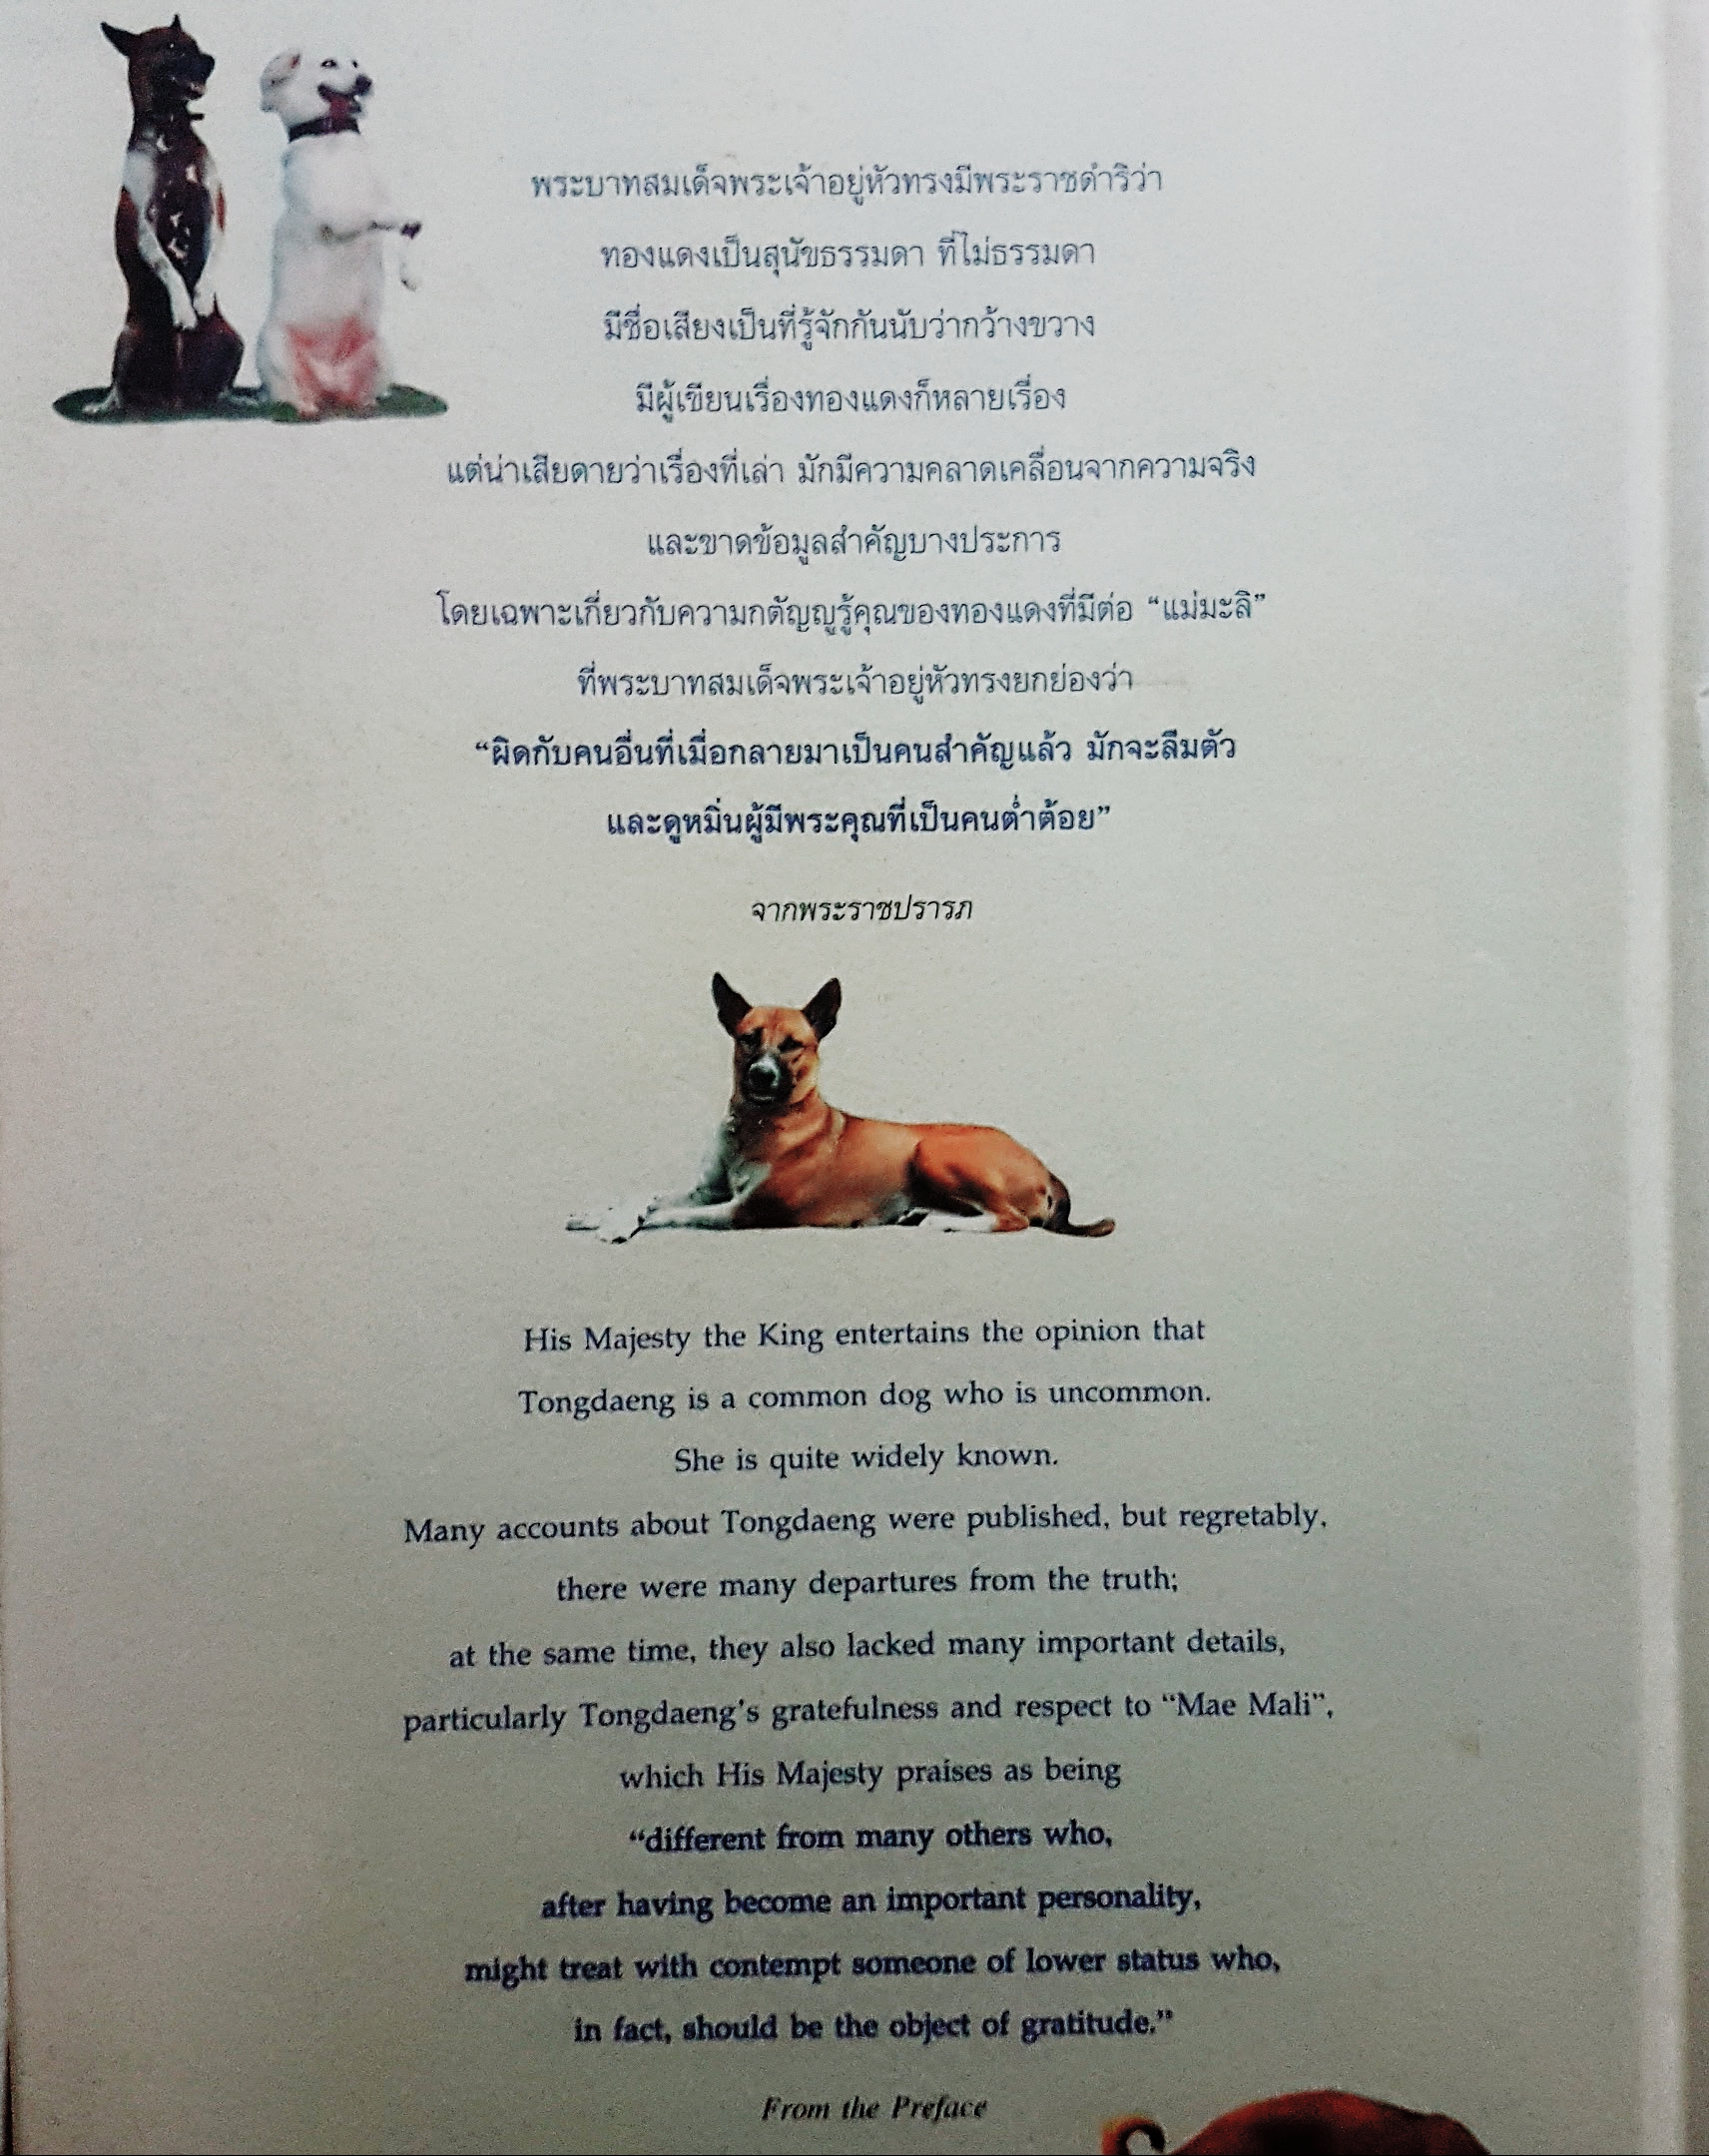 พระบาทสมเด็จพระเจ้าอยู่หัวทรงมีพระราชดำริว่า
ทองแดงเป็นสุนัขธรรมดา ที่ไม่ธรรมดา
มีชื่อเสียงเป็นที่รู้จักกันนับว่ากว้างขวาง
มีผู้เขียนเรื่องทองแดงก็หลายเรื่อง
แต่น่าเสียดายว่าเรื่องที่เล่า มักมีความคลาดเคลื่อนจากความจริง
และขาดข้อมูลสำคัญบางประการ
โดยเฉพาะเกี่ยวกับความกตัญญูรู้คุณของทองแดงที่มีต่อ “แม่มะลิ”
ที่พระบาทสมเด็จพระเจ้าอยู่หัวทรงยกย่องว่า
“ผิดกับคนอื่นที่เมื่อกลายมาเป็นคนสำคัญแล้ว มักจะลืมตัว
และดูหมิ่นผู้มีพระคุณที่เป็นคนต่ำต้อย”
จากพระราชปรารภ
His Majesty the King entertains the opinion that
Tongdaeng is a common dog who is uncommon.
She is quite widely known.
Many accounts about Tongdaeng were published, but regretably,
there were many departures from the truth;
at the same time, they also lacked many important details,
particularly Tongdaeng's gratefulness and respect to “Mae Mali”,
which His Majesty praises as being
“different from many others who,
after having become an important personality,
might treat with contempt someone of lower status who,
in fact, should be the object of gratitude.”
From the Preface